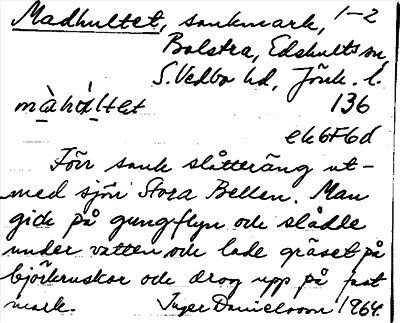 Madhultet, sankmark, 1-2
Bolstra, Edshults sn,
S. Vedbo hd, Jönk. l.
màhúltet 136
ek6F6d
Förr sank slåtteräng ut-
med sjön Stora Bellen. Man
gick på gungflyn och slådde
under vatten och lade gräset på
björkruskor och drog upp på fast
mark. Inger Danielsson 1964.